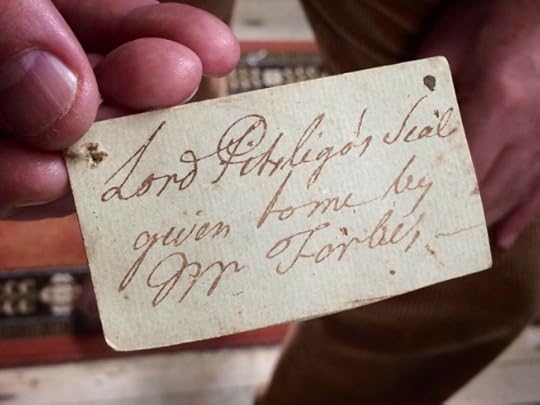 Lord Pitsligo's Seal
given to me by
Mr Forbes